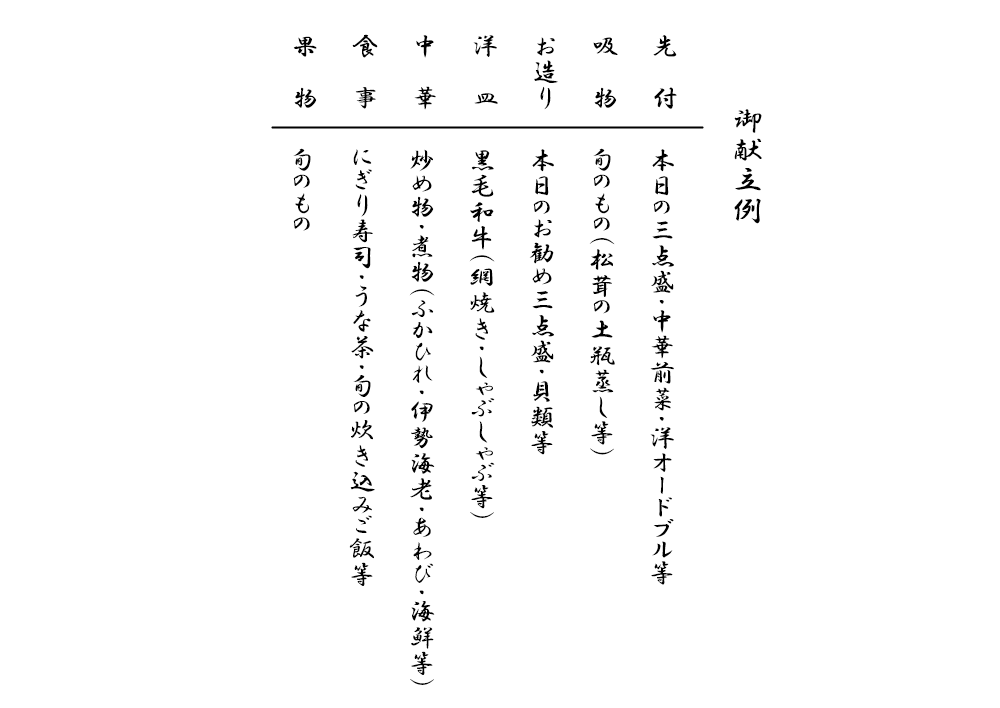 御献立例
先付 本日の三点盛・中華前菜・洋オードブル等
吸物 旬のもの(松茸の土瓶蒸し等)
お造り 本日のお勧め三点盛・貝類等
洋皿 黒毛和牛(網焼き・しゃぶしゃぶ等)
中華 炒め物・煮物(ふかひれ・伊勢海老・あわび・海鮮等)
食事 にぎり寿司・うな茶・旬の炊き込みご飯等
果物 旬のもの